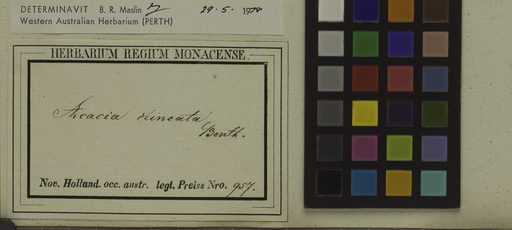 DETERMINAVIT B. R. Maslin 29·5· 1978
Western Australian Herbarium (PERTH)
HERBARIUM REGIUM MONACENSE.
Acacia cuneata
Benth.
Nov. Holland. occ. austr. legt. Preiss Nro. 957.